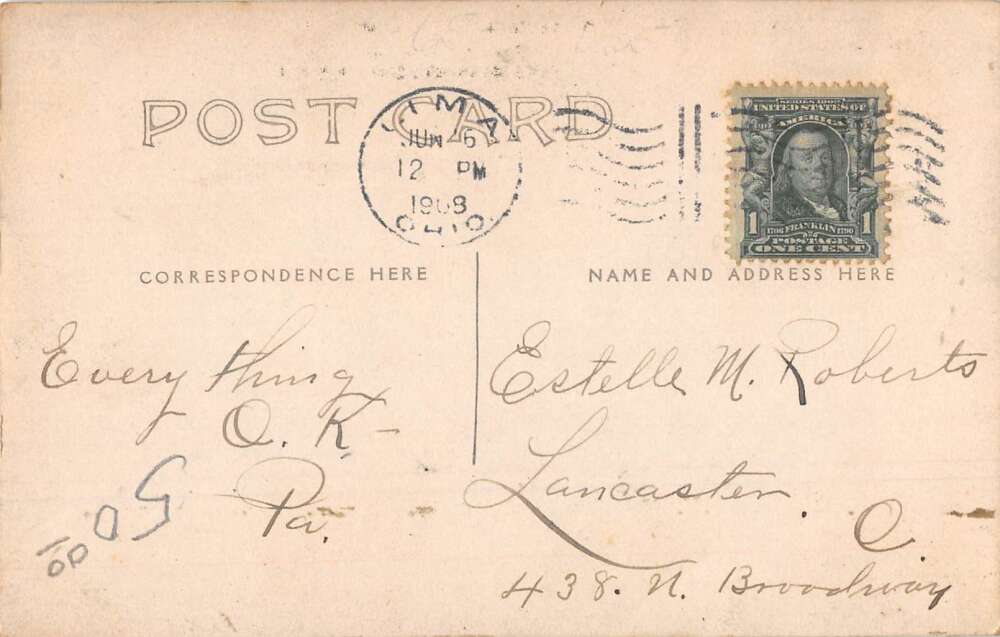 POST CARD
LIMA
JUN 6
12 PM
1908
OHIO
SERIES 1902
UNITED STATES OF
AMERICA
1 1
1706 FRANKLIN 1790
POSTAGE
ONE CENT
CORRESPONDENCE HERE
NAME AND ADDRESS HERE
Every thing
O. K –
Pa.
Estelle M. Roberts
Lancaster
O.
438. N. Broadway
50